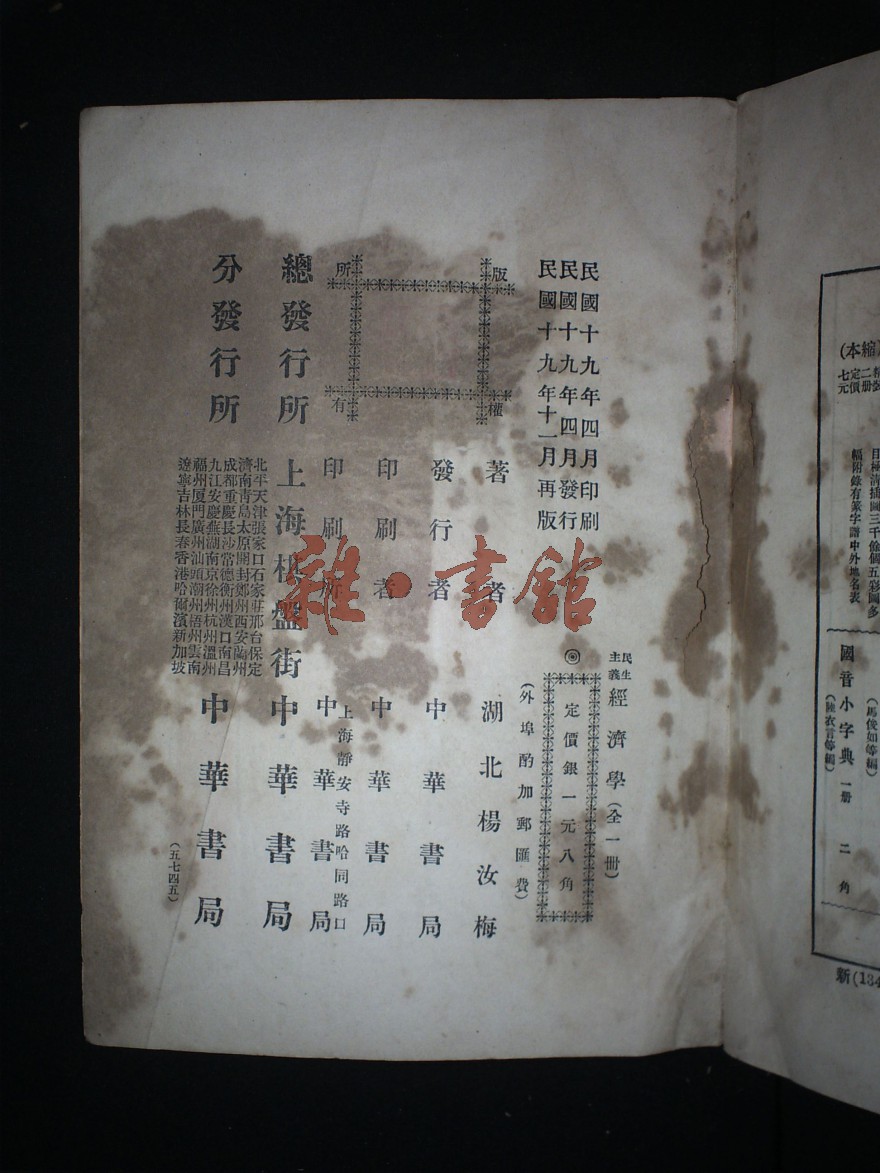 民國十九年四月印刷
民國十九年四月發行
民國十九年十一月再版
民生主義經濟學(全一冊)
◎定價銀一元八角
(外埠酌加郵匯費)
版權所有
著者 湖北楊汝梅
發行者 中華書局
印刷者 中華書局
上海靜安寺路哈同路口
印刷所 中華書局
總發行所 上海棋盤街 中華書局
分發行所
北平天津張家口石家莊邢台保定
濟南青島太原開封鄭州西安蘭州
成都重慶長沙常德衡州漢口南昌
九江安慶蕪湖南京徐州杭州溫州
福州厦門廣州汕頭潮州梧州雲南
遼寧吉林長春香港哈爾濱新加坡
中華書局
(五七四五)
雜·書館
(縮本
二册
定價
七元
目極清插圖三千餘個五彩圖多
幅附錄有篆字譜中外地名表
(馬俊如等編)
國音小字典 一册 二角
(陸衣言等編)
新(134